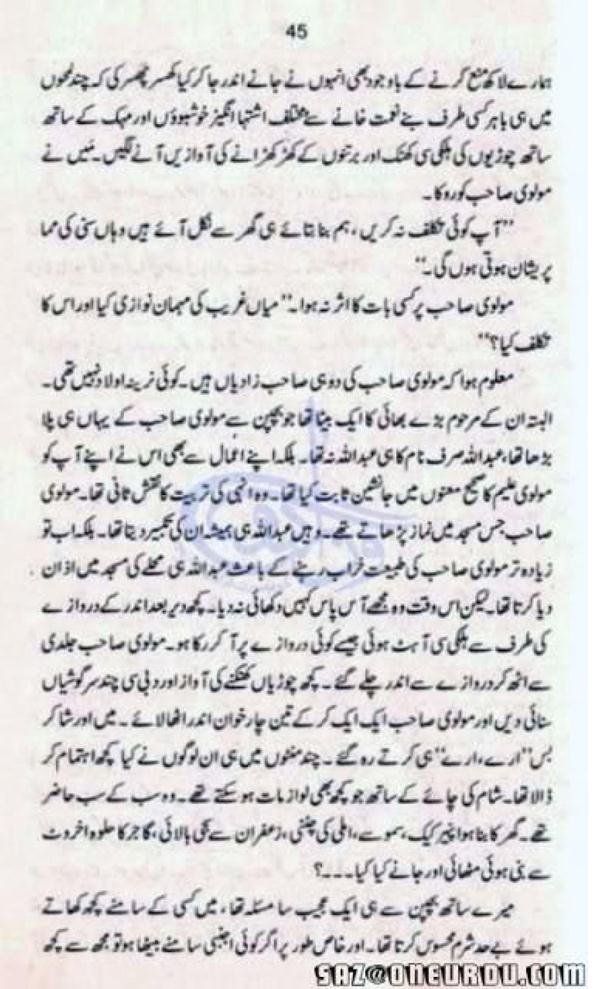 45
ہمارے لاکھ منع کرنے کے باوجود بھی انہوں نے جانے اندر جا کر کیا کھسر پھسر کی کہ چند لمحوں
میں ہی باہر کسی طرف بنے نعمت خانے سے مختلف اشتہا انگیز خوشبوؤں اور مہک کے ساتھ
ساتھ چوڑیوں کی ہلکی سی کھنک اور برتنوں کے کھڑ کھڑانے کی آوازیں آنے لگیں۔ میں نے
مولوی صاحب کو روکا۔
’’آپ کوئی تکلف نہ کریں، ہم بنا بتائے ہی گھر سے نکل آئے ہیں وہاں سنی کی مما
پریشان ہوتی ہوں گی۔‘‘
مولوی صاحب پر کسی بات کا اثر نہ ہوا۔ ’’میاں غریب کی مہمان نوازی کیا اور اس کا
تکلف کیا؟‘‘
معلوم ہوا کہ مولوی صاحب کی دو ہی صاحب زادیاں ہیں۔ کوئی نرینہ اولاد نہیں تھی۔
البتہ ان کے مرحوم بڑے بھائی کا ایک بیٹا تھا جو بچپن سے مولوی صاحب کے یہاں ہی پلا
بڑھا تھا، عبداللہ صرف نام کا ہی عبداللہ نہ تھا۔ بلکہ اپنے اعمال سے بھی اس نے اپنے آپ کو
مولوی علیم کا صحیح معنوں میں جانشین ثابت کیا تھا۔ وہ انہی کی تربیت کا نقش ثانی تھا۔ مولوی
صاحب جس مسجد میں نماز پڑھاتے تھے۔ وہیں عبداللہ ہی ہمیشہ ان کی تکبیر دیتا تھا۔ بلکہ اب تو
زیادہ تر مولوی صاحب کی طبیعت خراب رہنے کے باعث عبداللہ ہی محلے کی مسجد میں اذان
دیا کرتا تھا۔ لیکن اس وقت وہ مجھے آس پاس کہیں دکھائی نہ دیا۔ کچھ دیر بعد اندر کے دروازے
کی طرف سے ہلکی سی آہٹ ہوئی جیسے کوئی دروازے پر آ کر رکا ہو۔ مولوی صاحب جلدی
سے اٹھ کر دروازے سے اندر چلے گئے۔ کچھ چوڑیاں کھنکنے کی آواز اور دبی سی چند سرگوشیاں
سنائی دیں اور مولوی صاحب ایک ایک کر کے تین چار خوان اندر اٹھا لائے۔ میں اور شاکر
بس ’’ارے، ارے‘‘ ہی کرتے رہ گئے۔ چند منٹوں میں ہی ان لوگوں نے کیا کچھ اہتمام کر
ڈالا تھا۔ شام کی چائے کے ساتھ جو کچھ بھی لوازمات ہو سکتے تھے۔ وہ سب کے سب حاضر
تھے۔ گھر کا بنا ہوا پنیر کیک، سموسے، املی کی چٹنی، زعفران سے سجی بالائی، گاجر کا حلوہ اخروٹ
سے بنی ہوئی مٹھائی اور جانے کیا کیا۔۔۔؟
میرے ساتھ بچپن سے ہی ایک عجیب سا مسئلہ تھا، میں کسی کے سامنے کچھ کھاتے
ہوئے بے حد شرم محسوس کرتا تھا۔ اور خاص طور پر اگر کوئی اجنبی سامنے بیٹھا ہو تو مجھ سے کچھ
SAZ@ONEURDU.COM